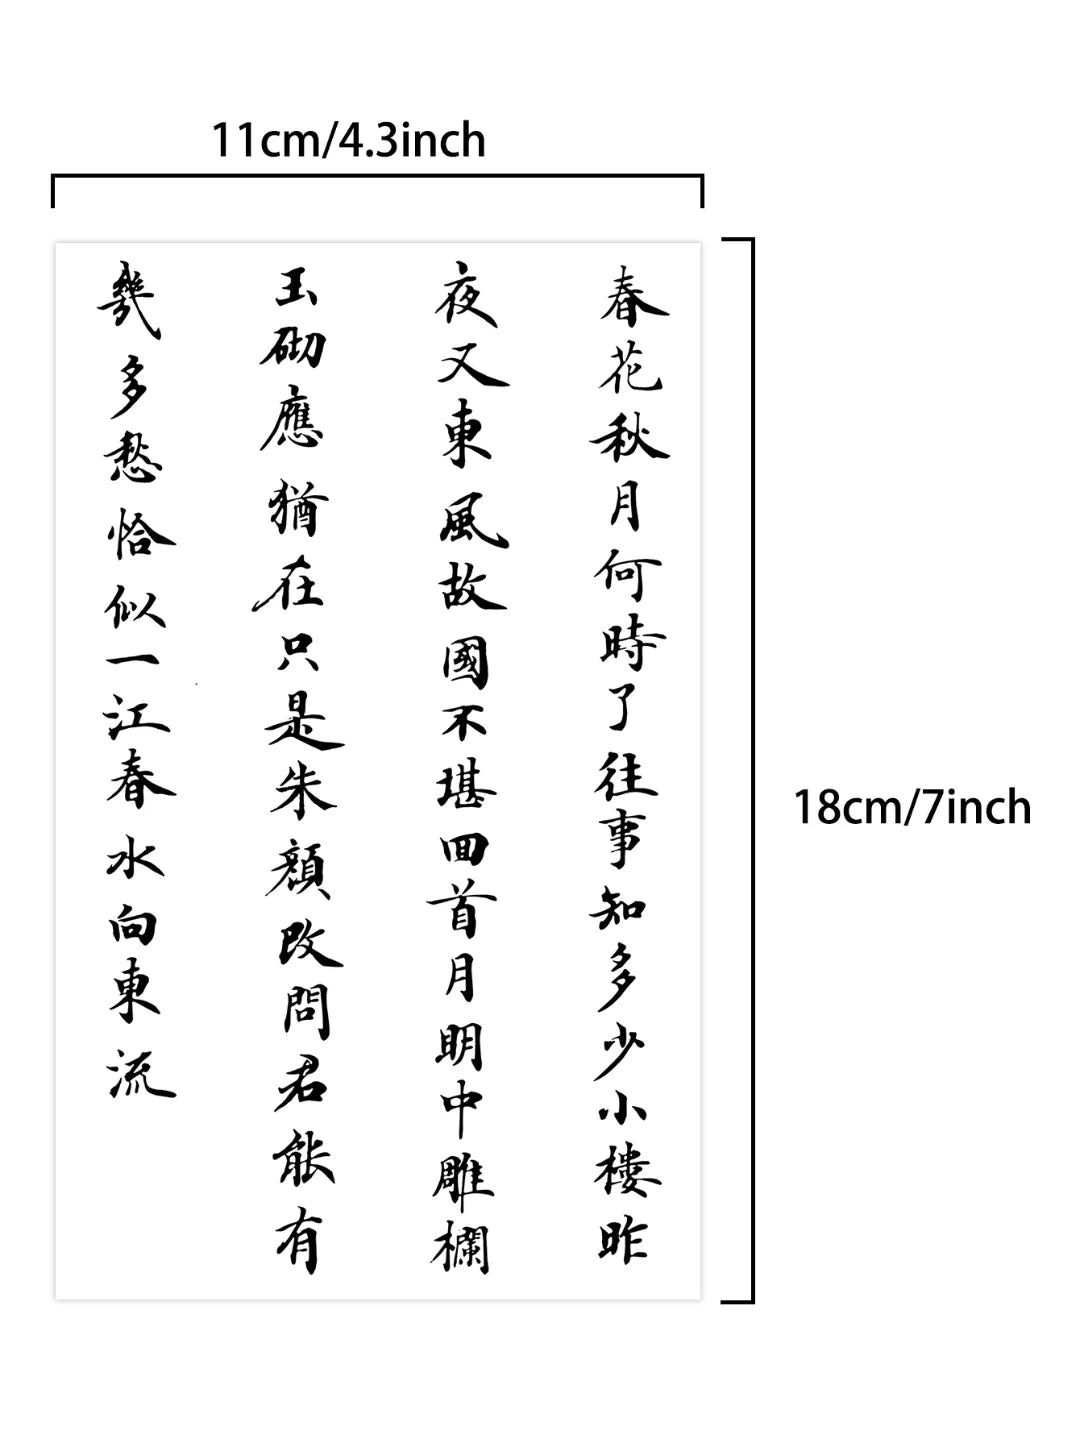 11cm/4.3inch
春花秋月何時了往事知多少小樓昨
夜又東風故國不堪回首月明中雕欄
玉砌應猶在只是朱顏改問君能有
幾多愁恰似一江春水向東流
18cm/7inch